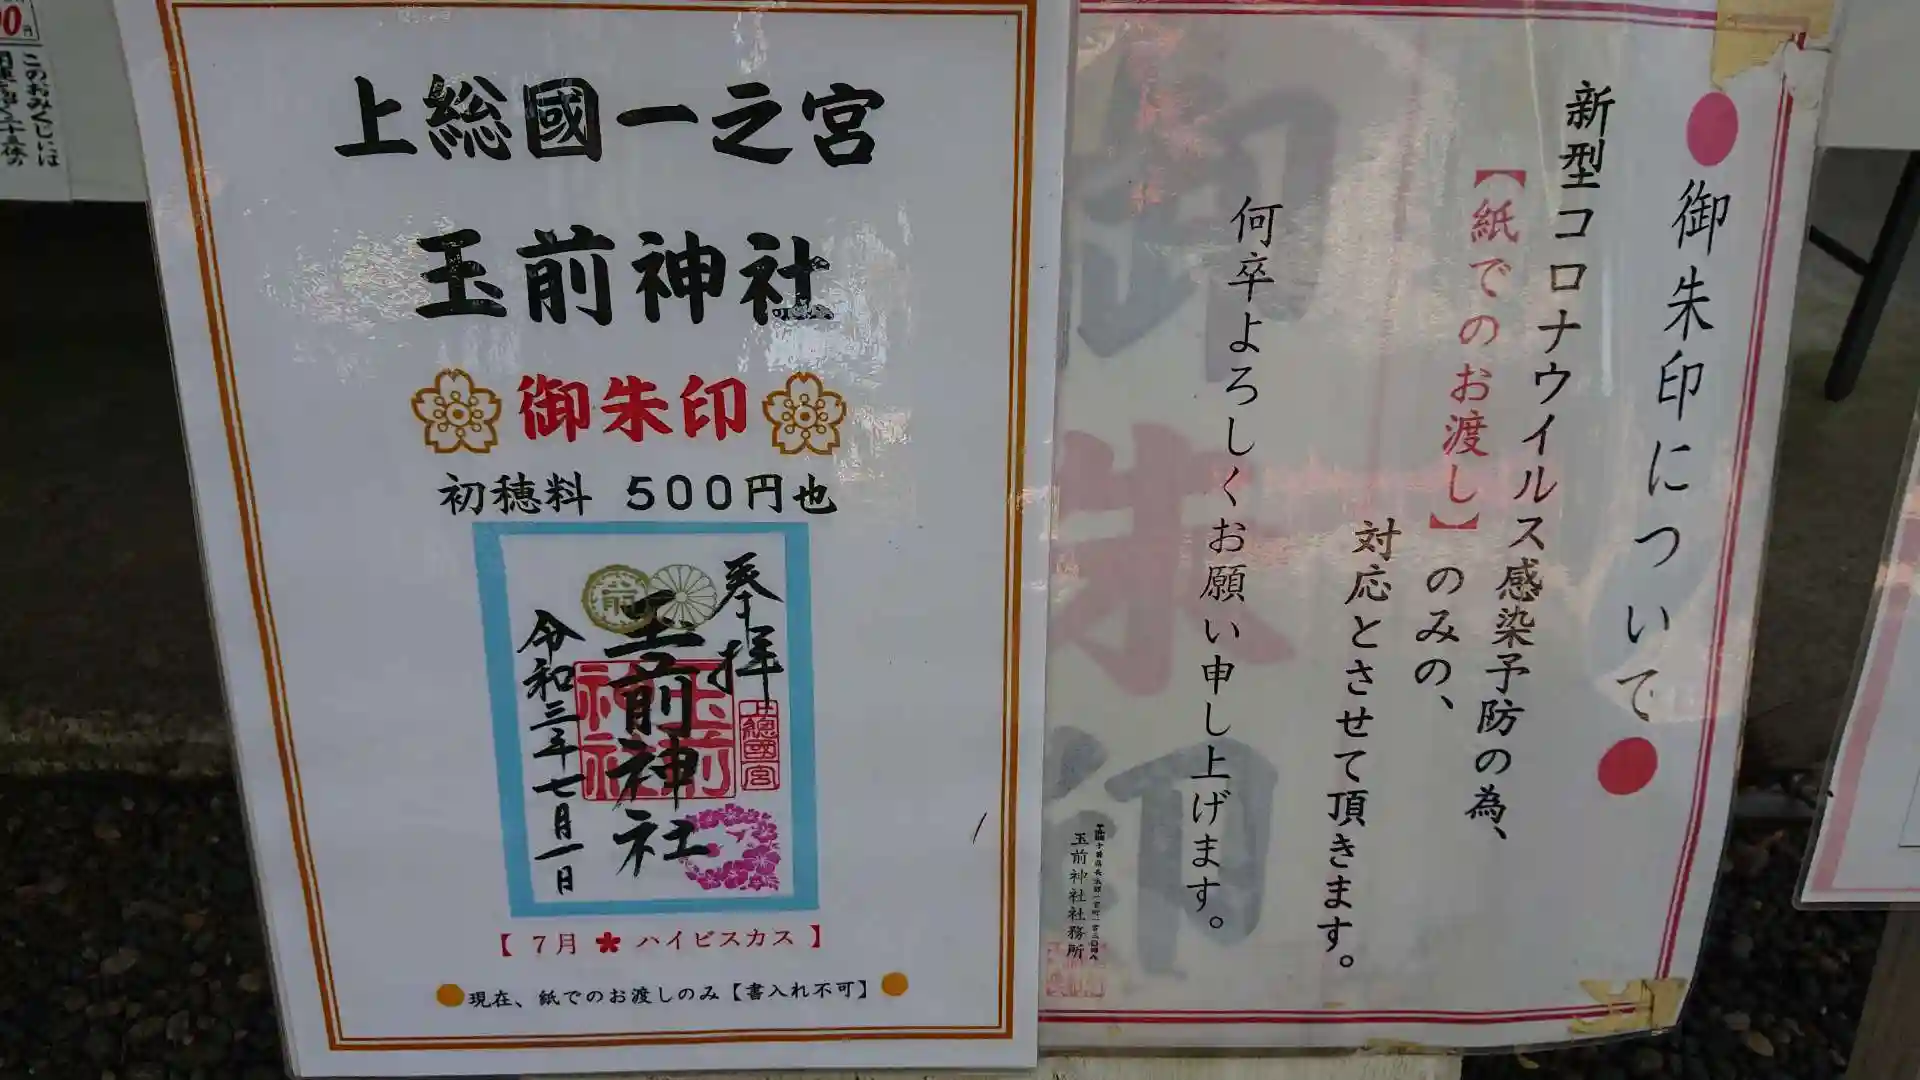 上総國一之宮
玉前神社
御朱印
初穂料 500円也
奉拝
上總國一宮
玉前神社
令和三年七月一日
【7月 ハイビスカス】
現在、紙でのお渡しのみ【書入れ不可】
御朱印について
新型コロナウイルス感染予防の為、
【紙でのお渡し】のみの、
対応とさせて頂きます。
何卒よろしくお願い申し上げます。
玉前神社社務所
御朱印
このおみくじには